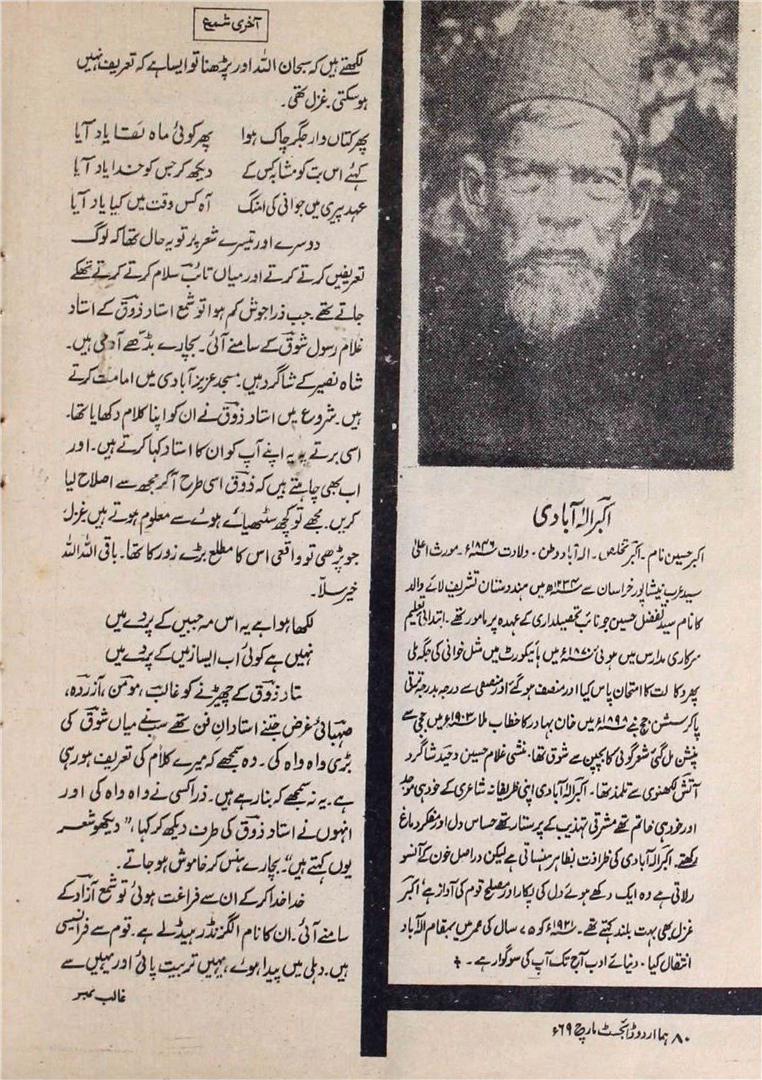 آخری شمع
لکھتے ہیں کہ سبحان اللہ اور پڑھنا تو ایسا ہے کہ تعریف نہیں
ہو سکتی۔ غزل تھی۔
پھر کتاں وار جگر چاک ہوا پھر کوئی ماہ لقا یاد آیا
کہئے اس بت کو مشابہ کس کے دیکھ کر جس کو خدا یاد آیا
عہد پیری میں جوانی کی امنگ آہ کس وقت میں کیا یاد آیا
دوسرے اور تیسرے شعر پر تو یہ حال تھا کہ لوگ
تعریفیں کرتے کرتے اور میاں تائب سلام کرتے کرتے تھکے
جاتے تھے۔ جب ذرا جوش کم ہوا تو شمع استاد ذوق کے استاد
غلام رسول شوق کے سامنے آئی۔ بچارے بڈھے آدمی ہیں۔
شاہ نصیر کے شاگرد ہیں۔ مسجد عزیز آبادی میں امامت کرتے
ہیں۔ شروع میں استاد ذوق نے ان کو اپنا کلام دکھایا تھا۔
اسی برتے پہ یہ اپنے آپ کو ان کا استاد کہا کرتے ہیں۔ اور
اب بھی چاہتے ہیں کہ ذوق اسی طرح آ کر مجھ سے اصلاح لیا
کریں۔ مجھے تو کچھ سٹھیائے ہوئے سے معلوم ہوتے ہیں غزل
جو پڑھی تو واقعی اس کا مطلع بڑے زور کا تھا۔ باقی اللہ اللہ
خیر سلّا۔
لکھا ہوا ہے یہ اس مہ جبیں کے پردے میں
نہیں ہے کوئی اب ایسا زمیں کے پردے میں
ستاد ذوق کے چھیڑنے کو غالب، مومن، آزردہ،
صہبائی غرض جتنے استادان فن تھے سب نے میاں شوق کی
بڑی واہ واہ کی۔ وہ سمجھے کہ میرے کلام کی تعریف ہو رہی
ہے۔ یہ نہ سمجھے کہ بنا رہے ہیں۔ ذرا کسی نے واہ واہ کی اور
انہوں نے استاد ذوق کی طرف دیکھ کر کہا، "دیکھو شعر
یوں کہتے ہیں" بچارے ہنس کر خاموش ہو جاتے۔
خدا خدا کر کے ان سے فراغت ہوئی تو شمع آزاد کے
سامنے آئی۔ ان کا نام الگزنڈر ہیڈلے ہے۔ قوم سے فرانسیسی
ہیں۔ دہلی میں پیدا ہوئے، یہیں تربیت پائی اور یہیں سے
غالب نمبر
اکبر الہ آبادی
اکبر حسین نام۔ اکبر تخلص۔ الہ آباد وطن۔ ولادت ۱۸۴۶ء۔ مورث اعلیٰ
سید عرب نیشاپور خراسان سے میں ہندوستان تشریف لائے والد
کا نام سید تفضل حسین جو نائب تحصیلداری کے عہدہ پر مامور تھے۔ ابتدائی تعلیم
سرکاری مدارس میں ہوئی ۱۸۷۰ء میں ہائیکورٹ میں مثل خوانی کی جگہ ملی
پھر وکالت کا امتحان پاس کیا اور منصف ہو گئے اور منصفی سے درجہ بدرجہ ترقی
پا کر سشن جج بنے ۱۸۹۸ء میں خان بہادر کا خطاب ملا ۱۹۰۳ء میں ججی سے
پنشن مل گئی شعر گوئی کا بچپن سے شوق تھا۔ منشی غلام حسین وحید شاگرد
آتش لکھنوی سے تلمذ تھا۔ اکبر الہ آبادی اپنی ظریفانہ شاعری کے خود ہی موجد
اور خود ہی خاتم تھے مشرقی تہذیب کے پرستار تھے حساس دل اور مفکر دماغ
رکھتے۔ اکبر الہ آبادی کی ظرافت بظاہر ہنساتی ہے لیکن دراصل خون کے آنسو
رلاتی ہے وہ ایک دکھے ہوئے دل کی پکار اور مصلح قوم کی آواز ہے اکبر
غزل بھی بہت بلند کہتے تھے۔ ۱۹۲۱ء کو ۷۵ سال کی عمر میں بمقام الہ آباد
انتقال کیا۔ دنیائے ادب آج تک آپ کی سوگوار ہے۔
۸۰ ہما اردو ڈائجسٹ مارچ ۶۹ء